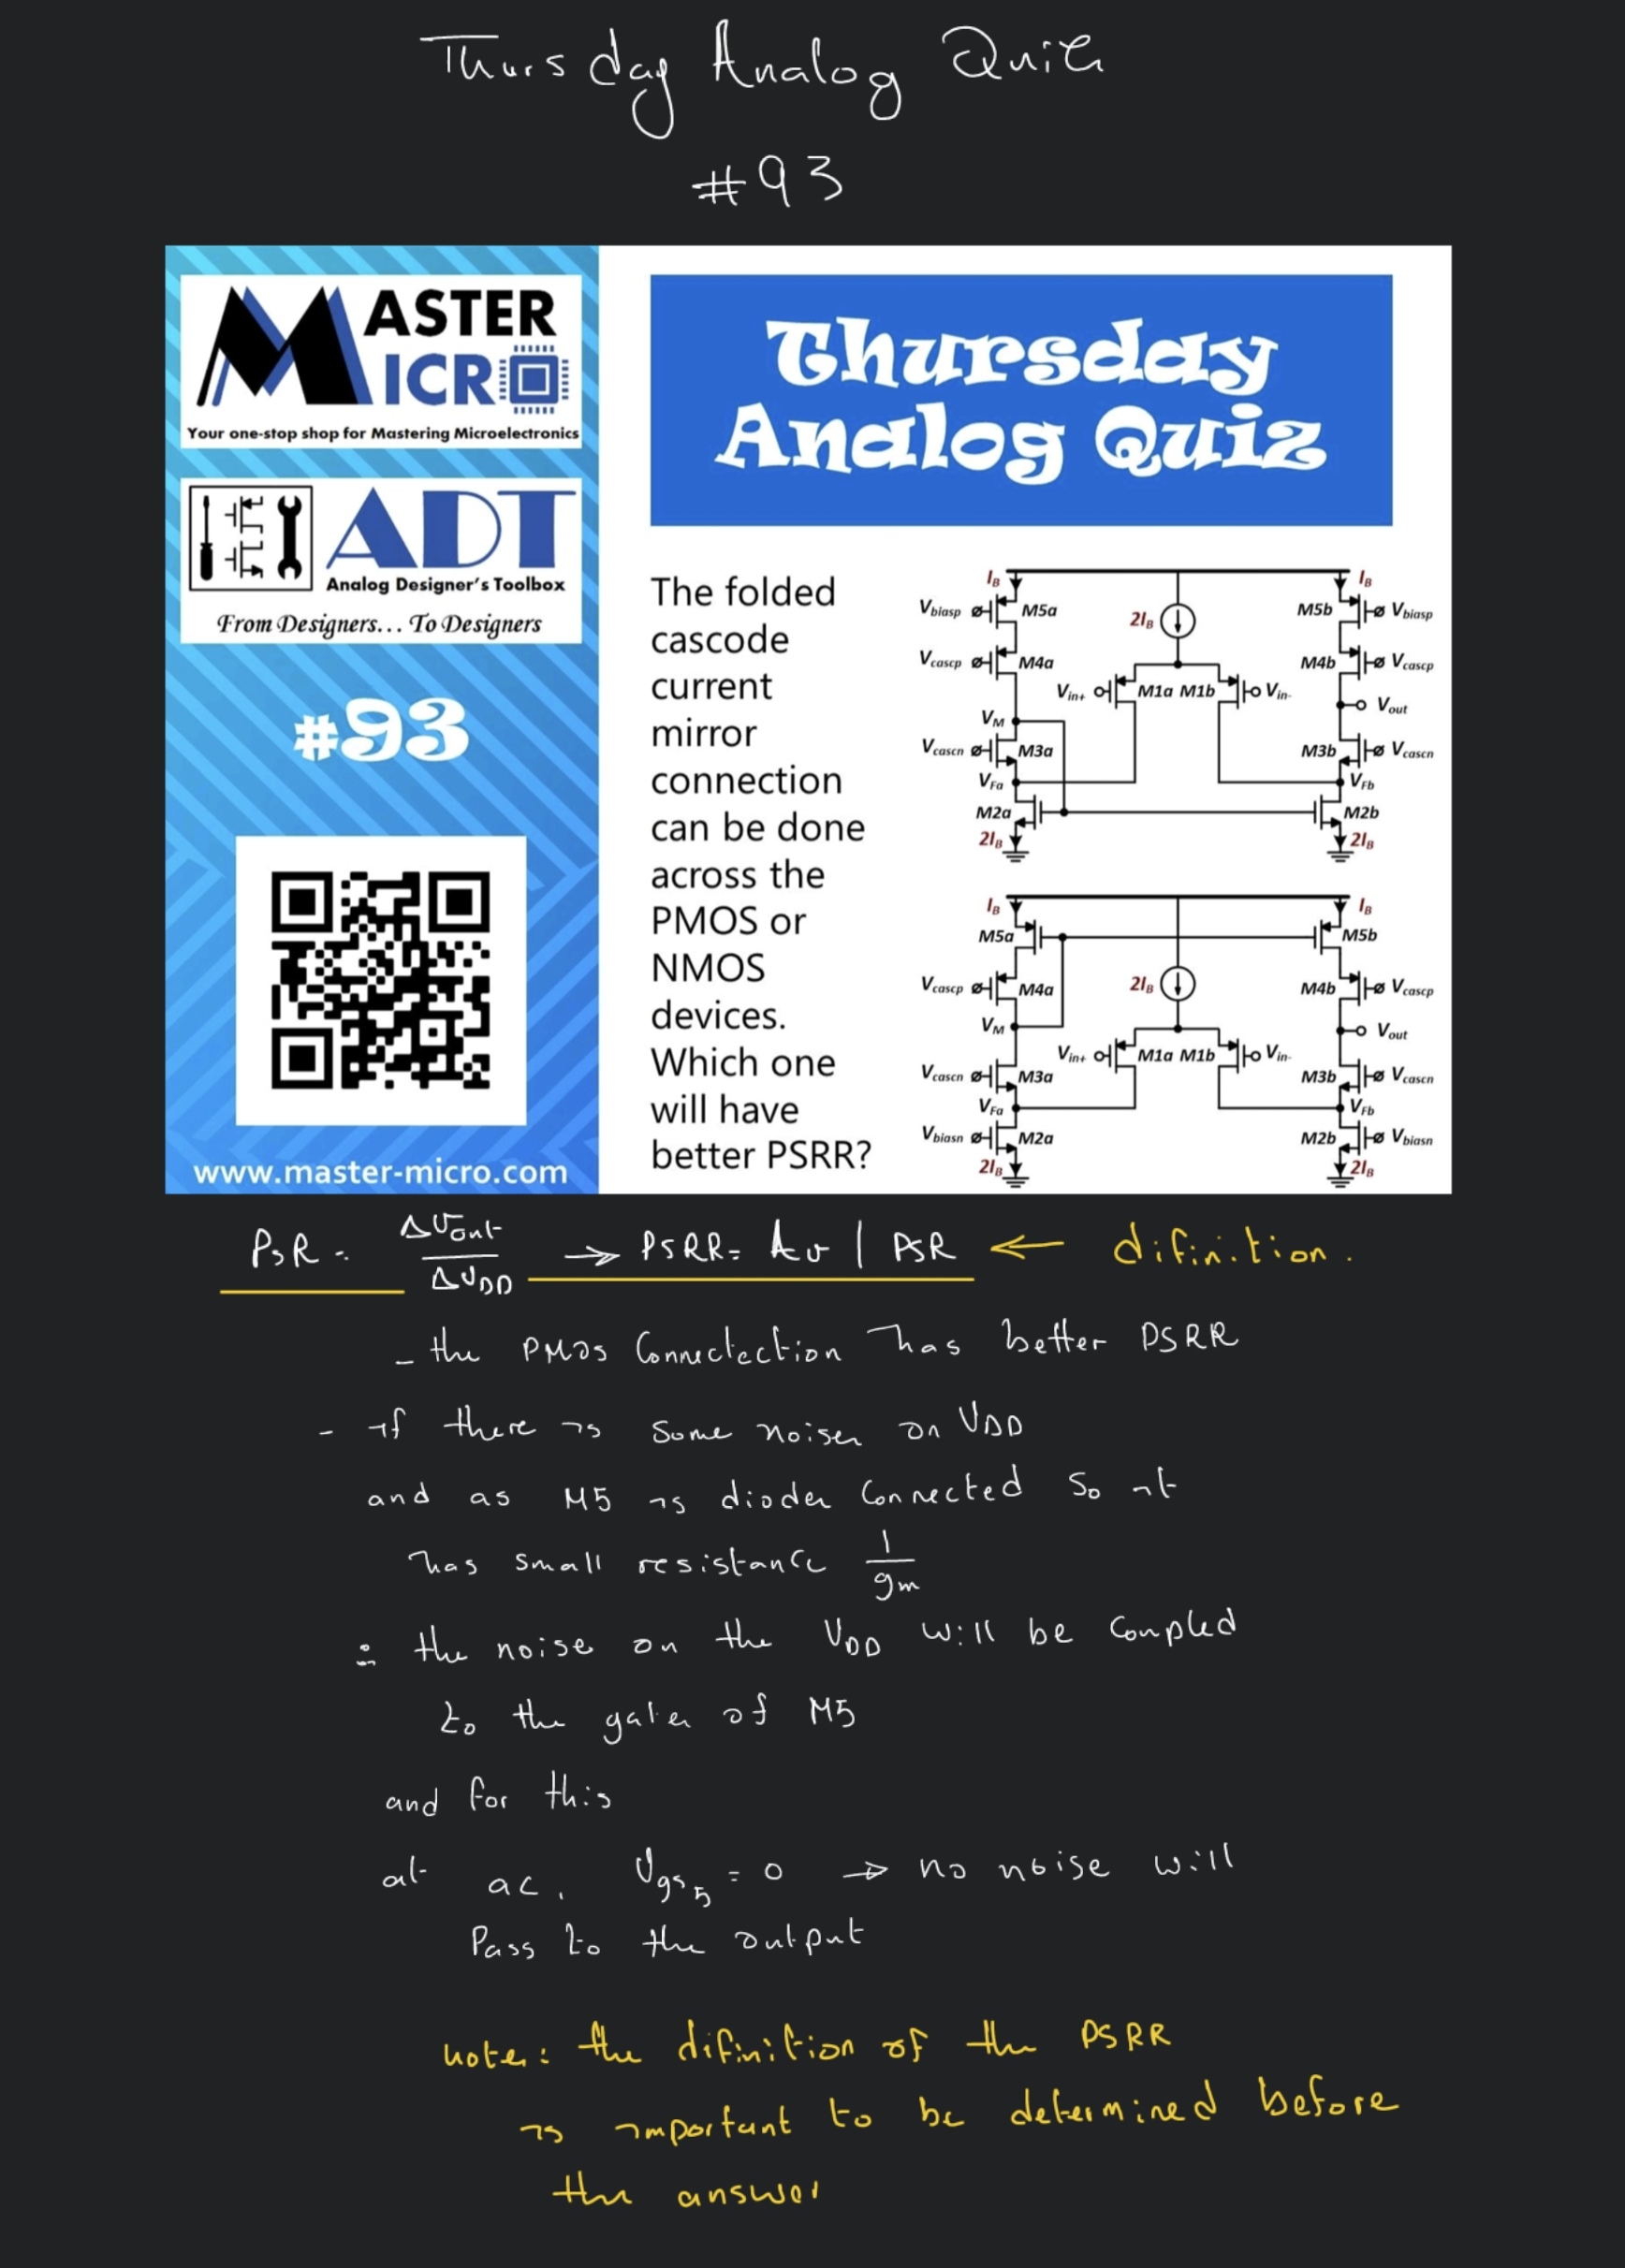 Thursday Analog Quiz
#93
MASTER
MICRO
Your one-stop shop for Mastering Microelectronics
ADT
Analog Designer's Toolbox
From Designers... To Designers
#93
www.master-micro.com
Thursday
Analog Quiz
The folded
cascode
current
mirror
connection
can be done
across the
PMOS or
NMOS
devices.
Which one
will have
better PSRR?
IB IB
Vbiasp M5a 2IB M5b Vbiasp
Vcascp M4a M4b Vcascp
Vin+ M1a M1b Vin-
VM Vout
Vcascn M3a M3b Vcascn
VFa VFb
M2a M2b
2IB 2IB
IB IB
M5a M5b
Vcascp M4a 2IB M4b Vcascp
VM Vout
Vin+ M1a M1b Vin-
Vcascn M3a M3b Vcascn
VFa VFb
Vbiasn M2a M2b Vbiasn
2IB 2IB
PSR = ΔVout / ΔVDD → PSRR = Av / PSR ← difinition.
- the PMOS Connectection has better PSRR
- if there is some noise on VDD
and as M5 is diode Connected so it
has small resistance 1/gm
∴ the noise on the VDD will be coupled
to the gate of M5
and for this
at ac, Vgs5 = 0 → no noise will
Pass to the output
note: the difinition of the PSRR
is important to be determined before
the answer